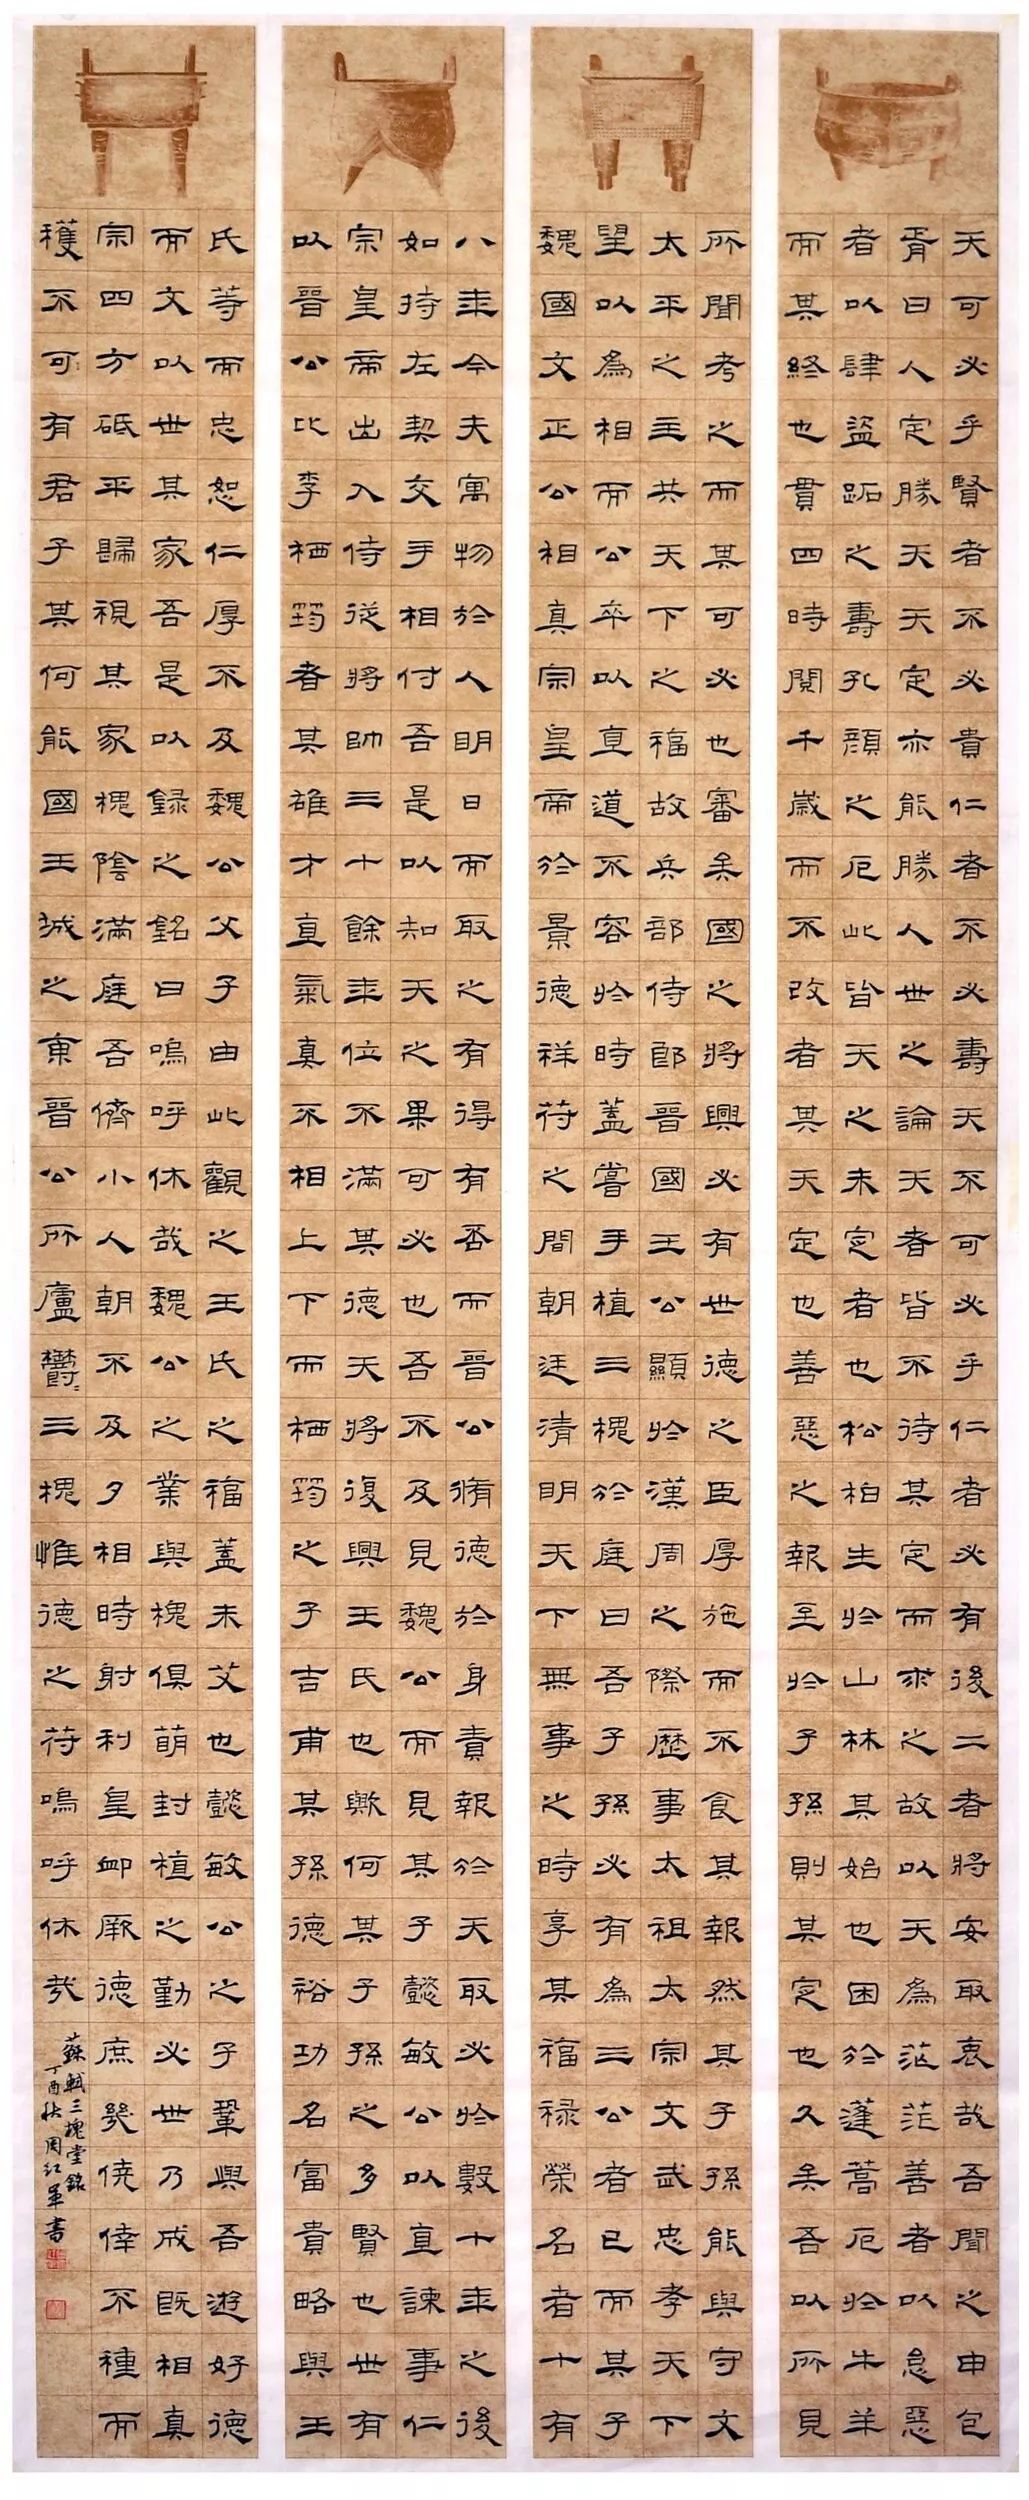 天可必乎賢者不必貴仁者不必壽天不可必乎仁者必有後二者將安取衷哉吾聞之申包
胥曰人定勝天天定亦能勝人世之論天者皆不待其定而求之故以天為茫茫善者以怠惡
者以肆盜跖之壽孔顏之厄此皆天之未定者也松柏生於山林其始也困於蓬蒿厄於牛羊
而其終也貫四時閱千歲而不改者其天定也善惡之報至於子孫則其定也久矣吾以所見
所聞考之而其可必也審矣國之將興必有世德之臣厚施而不食其報然其子孫能與守文
太平之主共天下之福故兵部侍郎晉國王公顯於漢周之際歷事太祖太宗文武忠孝天下
望以為相而公卒以直道不容於時蓋嘗手植三槐於庭曰吾子孫必有為三公者已而其子
魏國文正公相真宗皇帝於景德祥符之間朝廷清明天下無事之時享其福祿榮名者十有
八年今夫寓物於人明日而取之有得有否而晉公脩德於身責報於天取必於數十年之後
如持左契交手相付吾是以知天之果可必也吾不及見魏公而見其子懿敏公以直諫事仁
宗皇帝出入侍從將帥三十餘年位不滿其德天將復興王氏也歟何其子孫之多賢也世有
以晉公比李栖筠者其雄才直氣真不相上下而栖筠之子吉甫其孫德裕功名富貴略與王
氏等而忠恕仁厚不及魏公父子由此觀之王氏之福蓋未艾也懿敏公之子鞏與吾遊好德
而文以世其家吾是以錄之銘曰嗚呼休哉魏公之業與槐俱萌封植之勤必世乃成既相真
宗四方砥平歸視其家槐陰滿庭吾儕小人朝不及夕相時射利皇卹厥德庶幾僥倖不種而
穫不可有君子其何能國王城之東晉公所廬鬱〻三槐惟德之符嗚呼休哉
蘇軾三槐堂銘
丁酉秋周红軍書